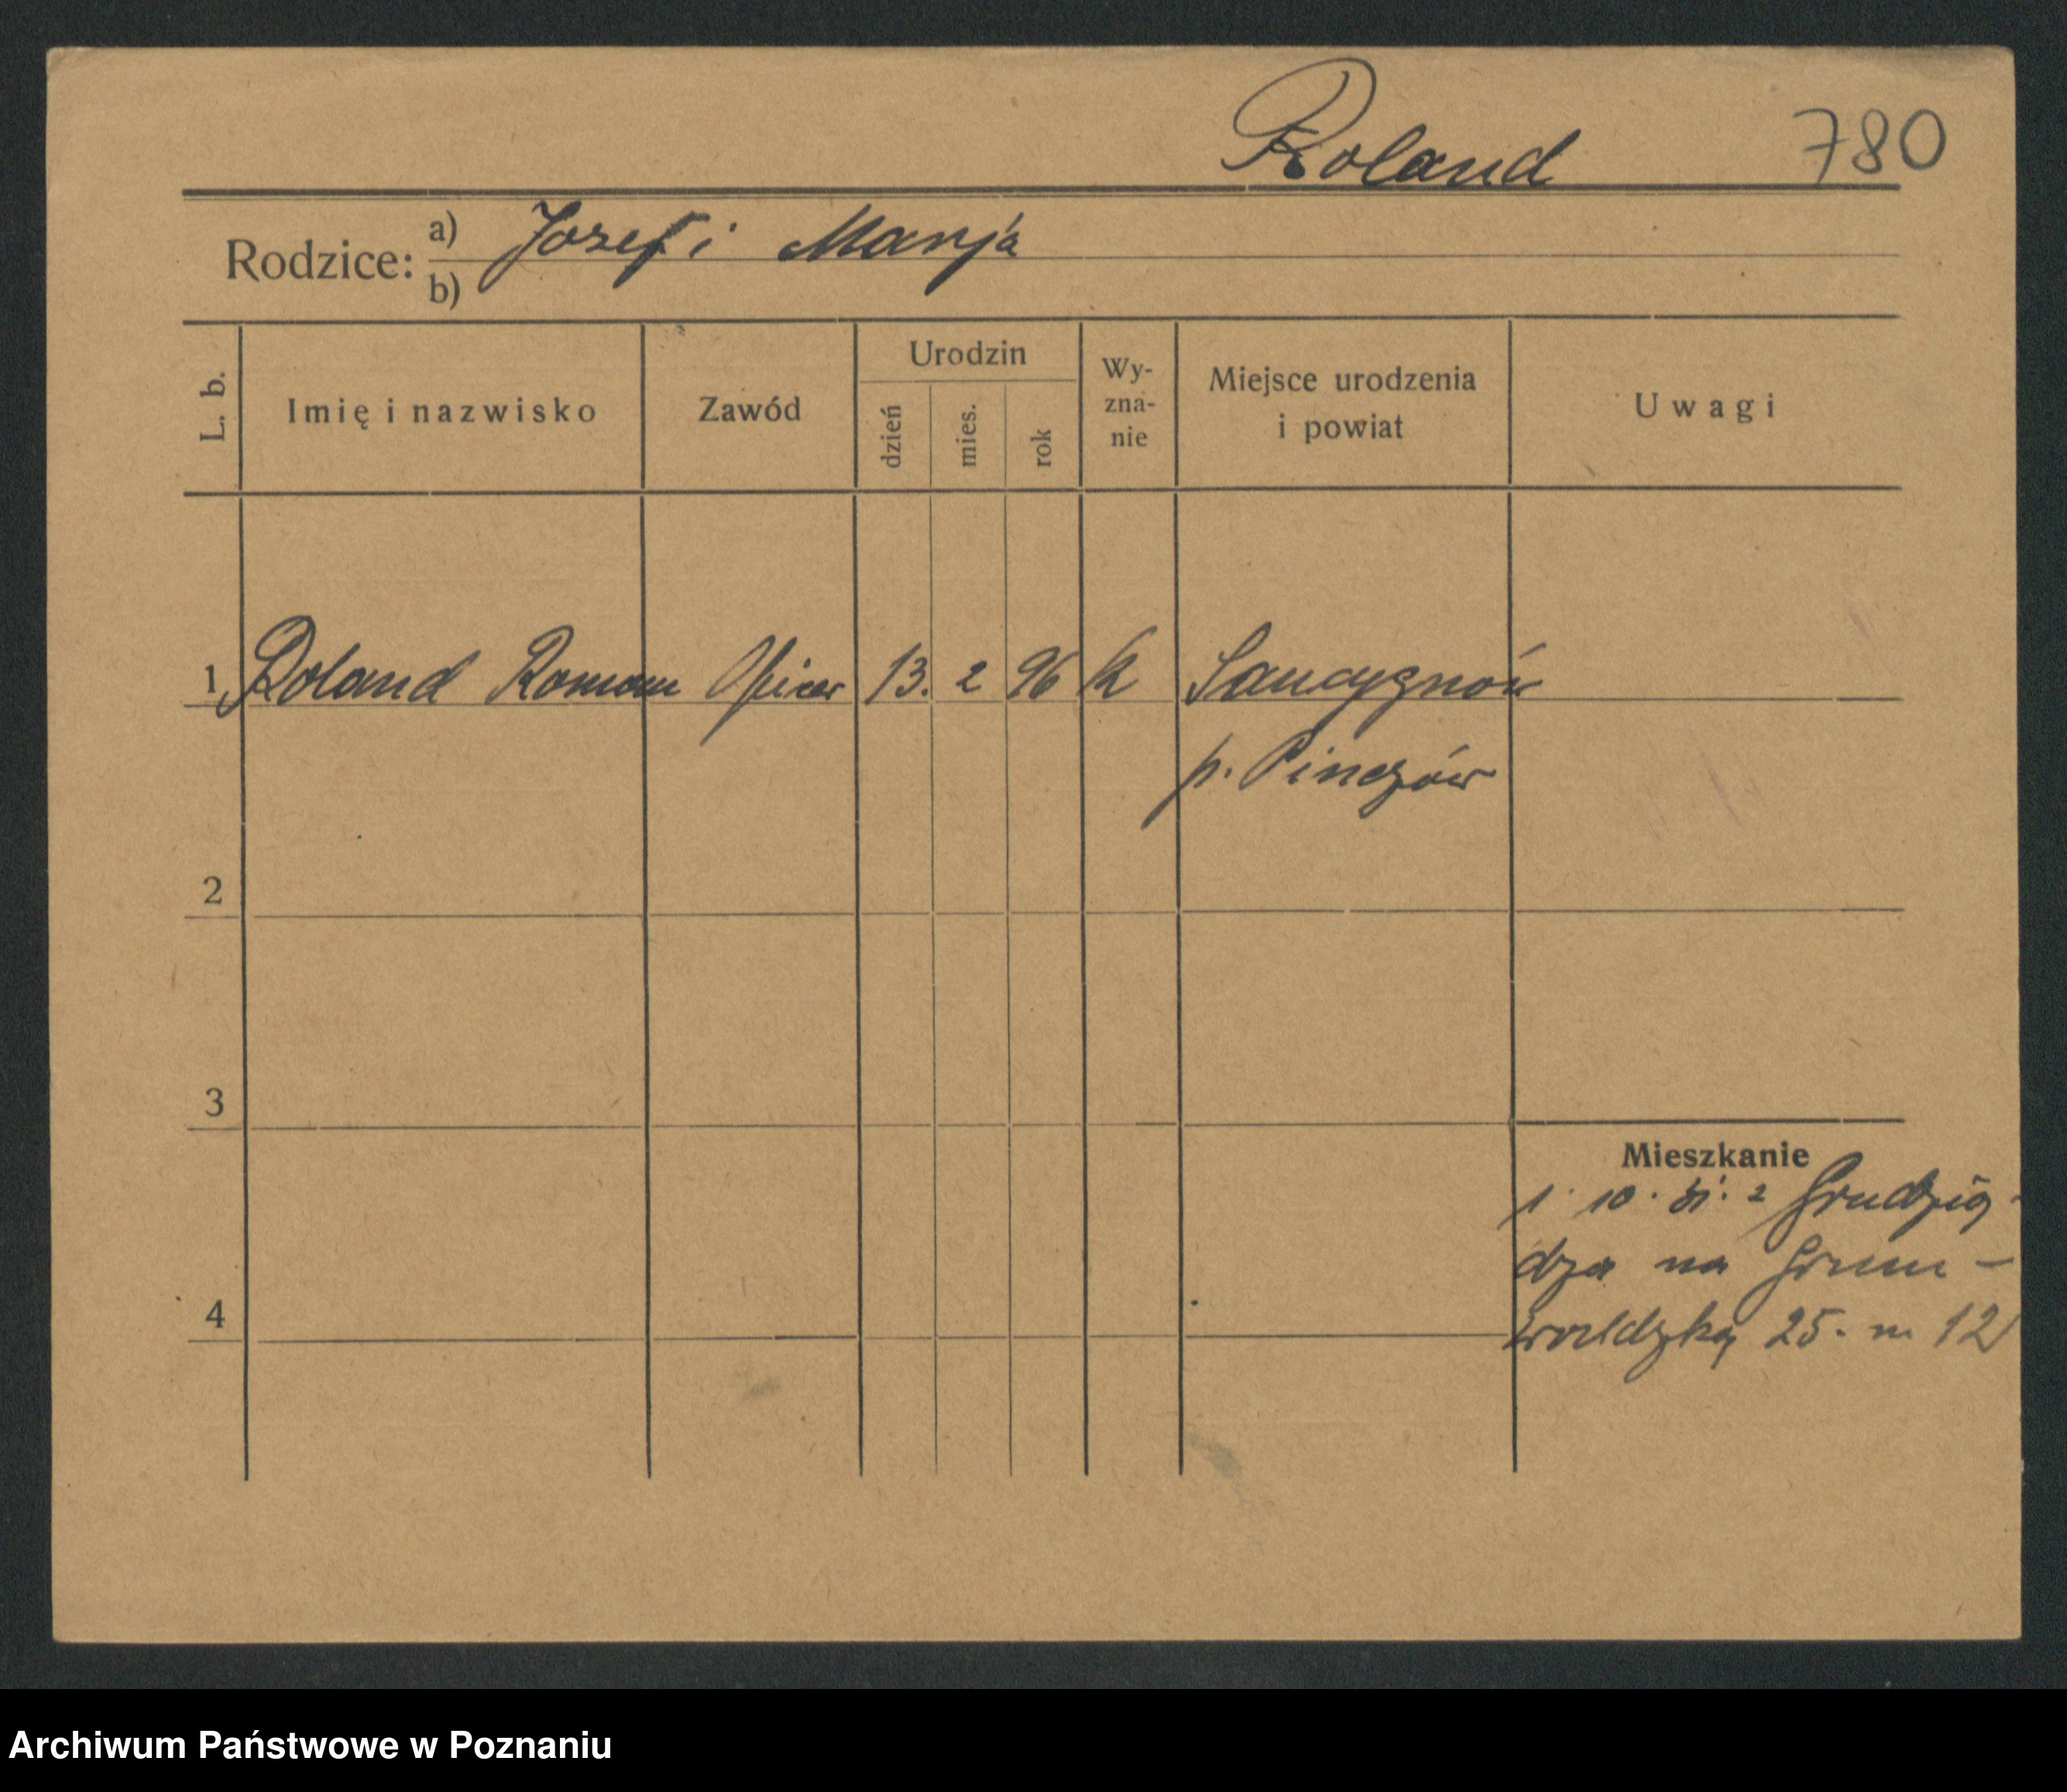 Roland 780
Rodzice: a) Jozef i Marja
b)
L. b. Imię i nazwisko Zawód Urodzin dzień mies. rok Wy-zna-nie Miejsce urodzenia i powiat Uwagi
1 Roland Roman Oficer 13. 2 96 k Sancygnów
p. Pinczów
2
3
Mieszkanie
1. 10. 31. z Grudzią-
dza na Grun-
4 waldzką 25. m 12
Archiwum Państwowe w Poznaniu